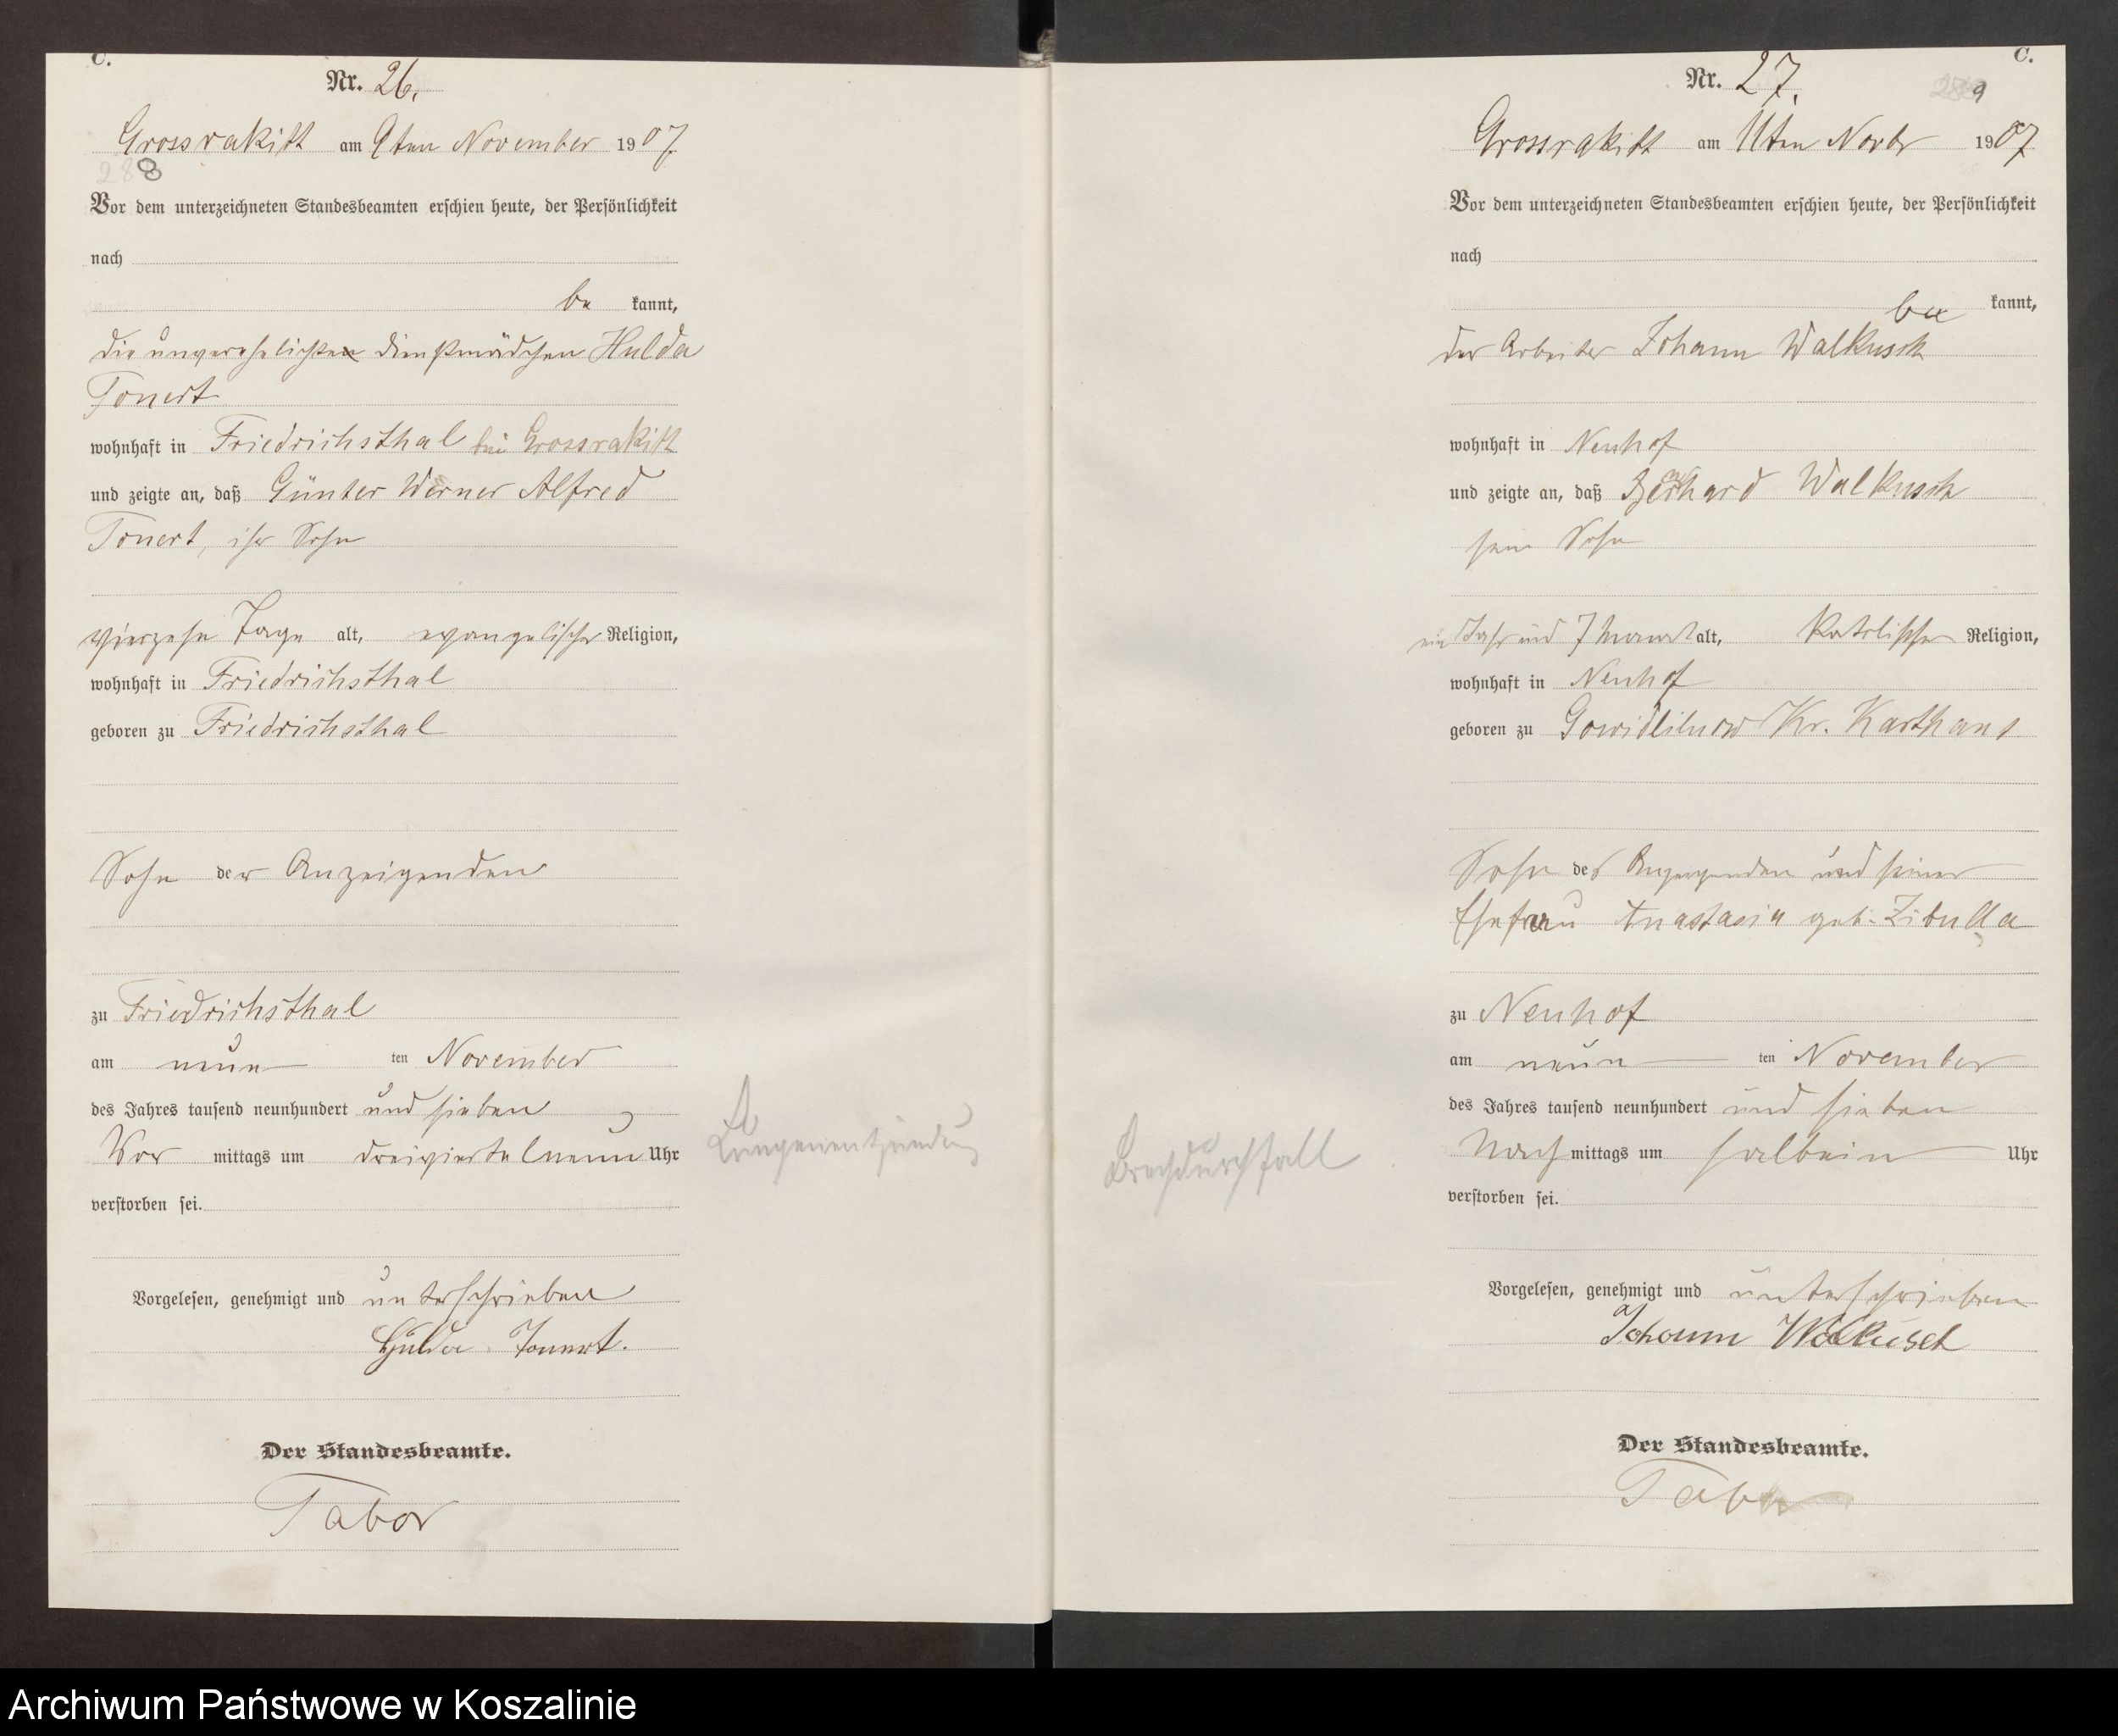 C.
Nr. 26.
Grossrakitt am 9ten November 1907
288
Vor dem unterzeichneten Standesbeamten erschien heute, der Persönlichkeit
nach
be kannt,
die unverehelichte Dienstmädchen Hulda
Tonert
wohnhaft in Friedrichsthal bei Grossrakitt
und zeigte an, daß Günter Werner Alfred
Tonert, ihr Sohn
vierzehn Tage alt, evangelischer Religion,
wohnhaft in Friedrichsthal
geboren zu Friedrichsthal
Sohn der Anzeigenden
zu Friedrichsthal
am neun ten November
des Jahres tausend neunhundert und sieben
Vor mittags um dreiviertelneun Uhr
verstorben sei.
Vorgelesen, genehmigt und unterschrieben
Hulda Tonert.
Der Standesbeamte.
Tabor
Lungenentzündung
C.
Nr. 27.
289
Grossrakitt am 11ten Novbr 1907
Vor dem unterzeichneten Standesbeamten erschien heute, der Persönlichkeit
nach
be kannt,
der Arbeiter Johann Walkusch
wohnhaft in Neuhof
und zeigte an, daß Walkusch
sein Sohn
ein Jahr und 7 Monat alt, katolischer Religion,
wohnhaft in Neuhof
geboren zu Gowidlinow Kr. Karthaus
Sohn des Anzeigenden und seiner
Ehefrau Anastasia geb. Zibulla
zu Neuhof
am neun ten November
des Jahres tausend neunhundert und sieben
Nach mittags um halbein Uhr
verstorben sei.
Vorgelesen, genehmigt und unterschrieben
Johann Walkusch
Der Standesbeamte.
Tabor
Brechdurchfall
Archiwum Państwowe w Koszalinie